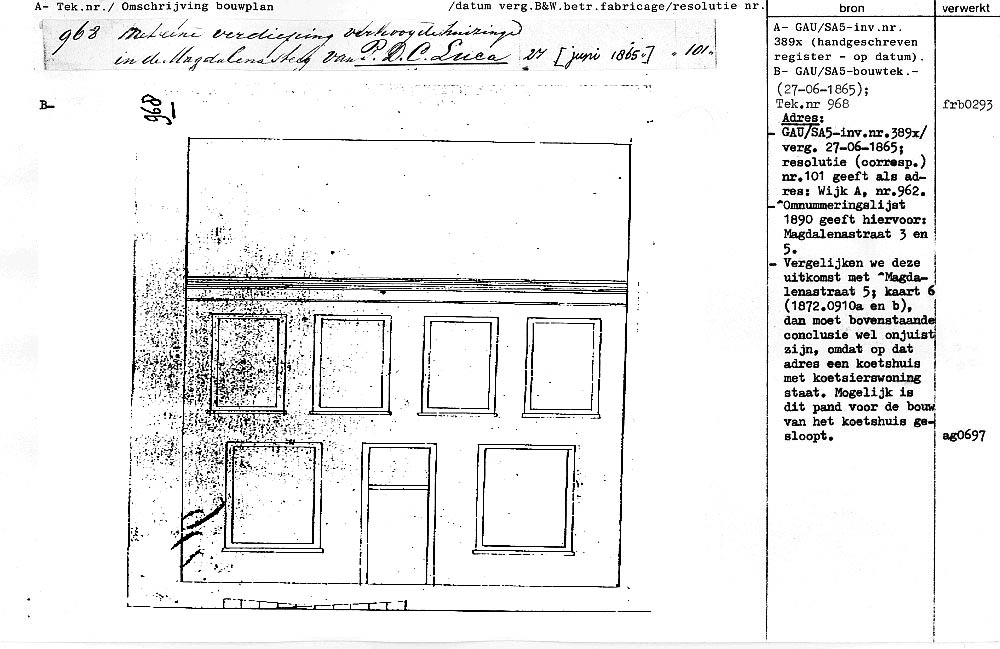 A- Tek.nr./ Omschrijving bouwplan /datum verg.B&W.betr.fabricage/resolutie nr.
bron
verwerkt
968 Met eene verdieping verhoogde huizinge
in de Magdalena Steeg van P. D. C. Luca 27 [juni 1865.] " 101 "
B-
968
A- GAU/SA5-inv.nr.
389x (handgeschreven
register - op datum).
B- GAU/SA5-bouwtek.-
(27-06-1865);
Tek.nr 968
frb0293
Adres:
- GAU/SA5-inv.nr.389x/
verg. 27-06-1865;
resolutie (corresp.)
nr.101 geeft als ad-
res: Wijk A, nr.962.
-^Omnummeringslijst
1890 geeft hiervoor:
Magdalenastraat 3 en
5.
- Vergelijken we deze
uitkomst met ^Magda-
lenastraat 5; kaart 6
(1872.0910a en b),
dan moet bovenstaande
conclusie wel onjuist
zijn, omdat op dat
adres een koetshuis
met koetsierswoning
staat. Mogelijk is
dit pand voor de bouw
van het koetshuis ge-
sloopt.
ag0697